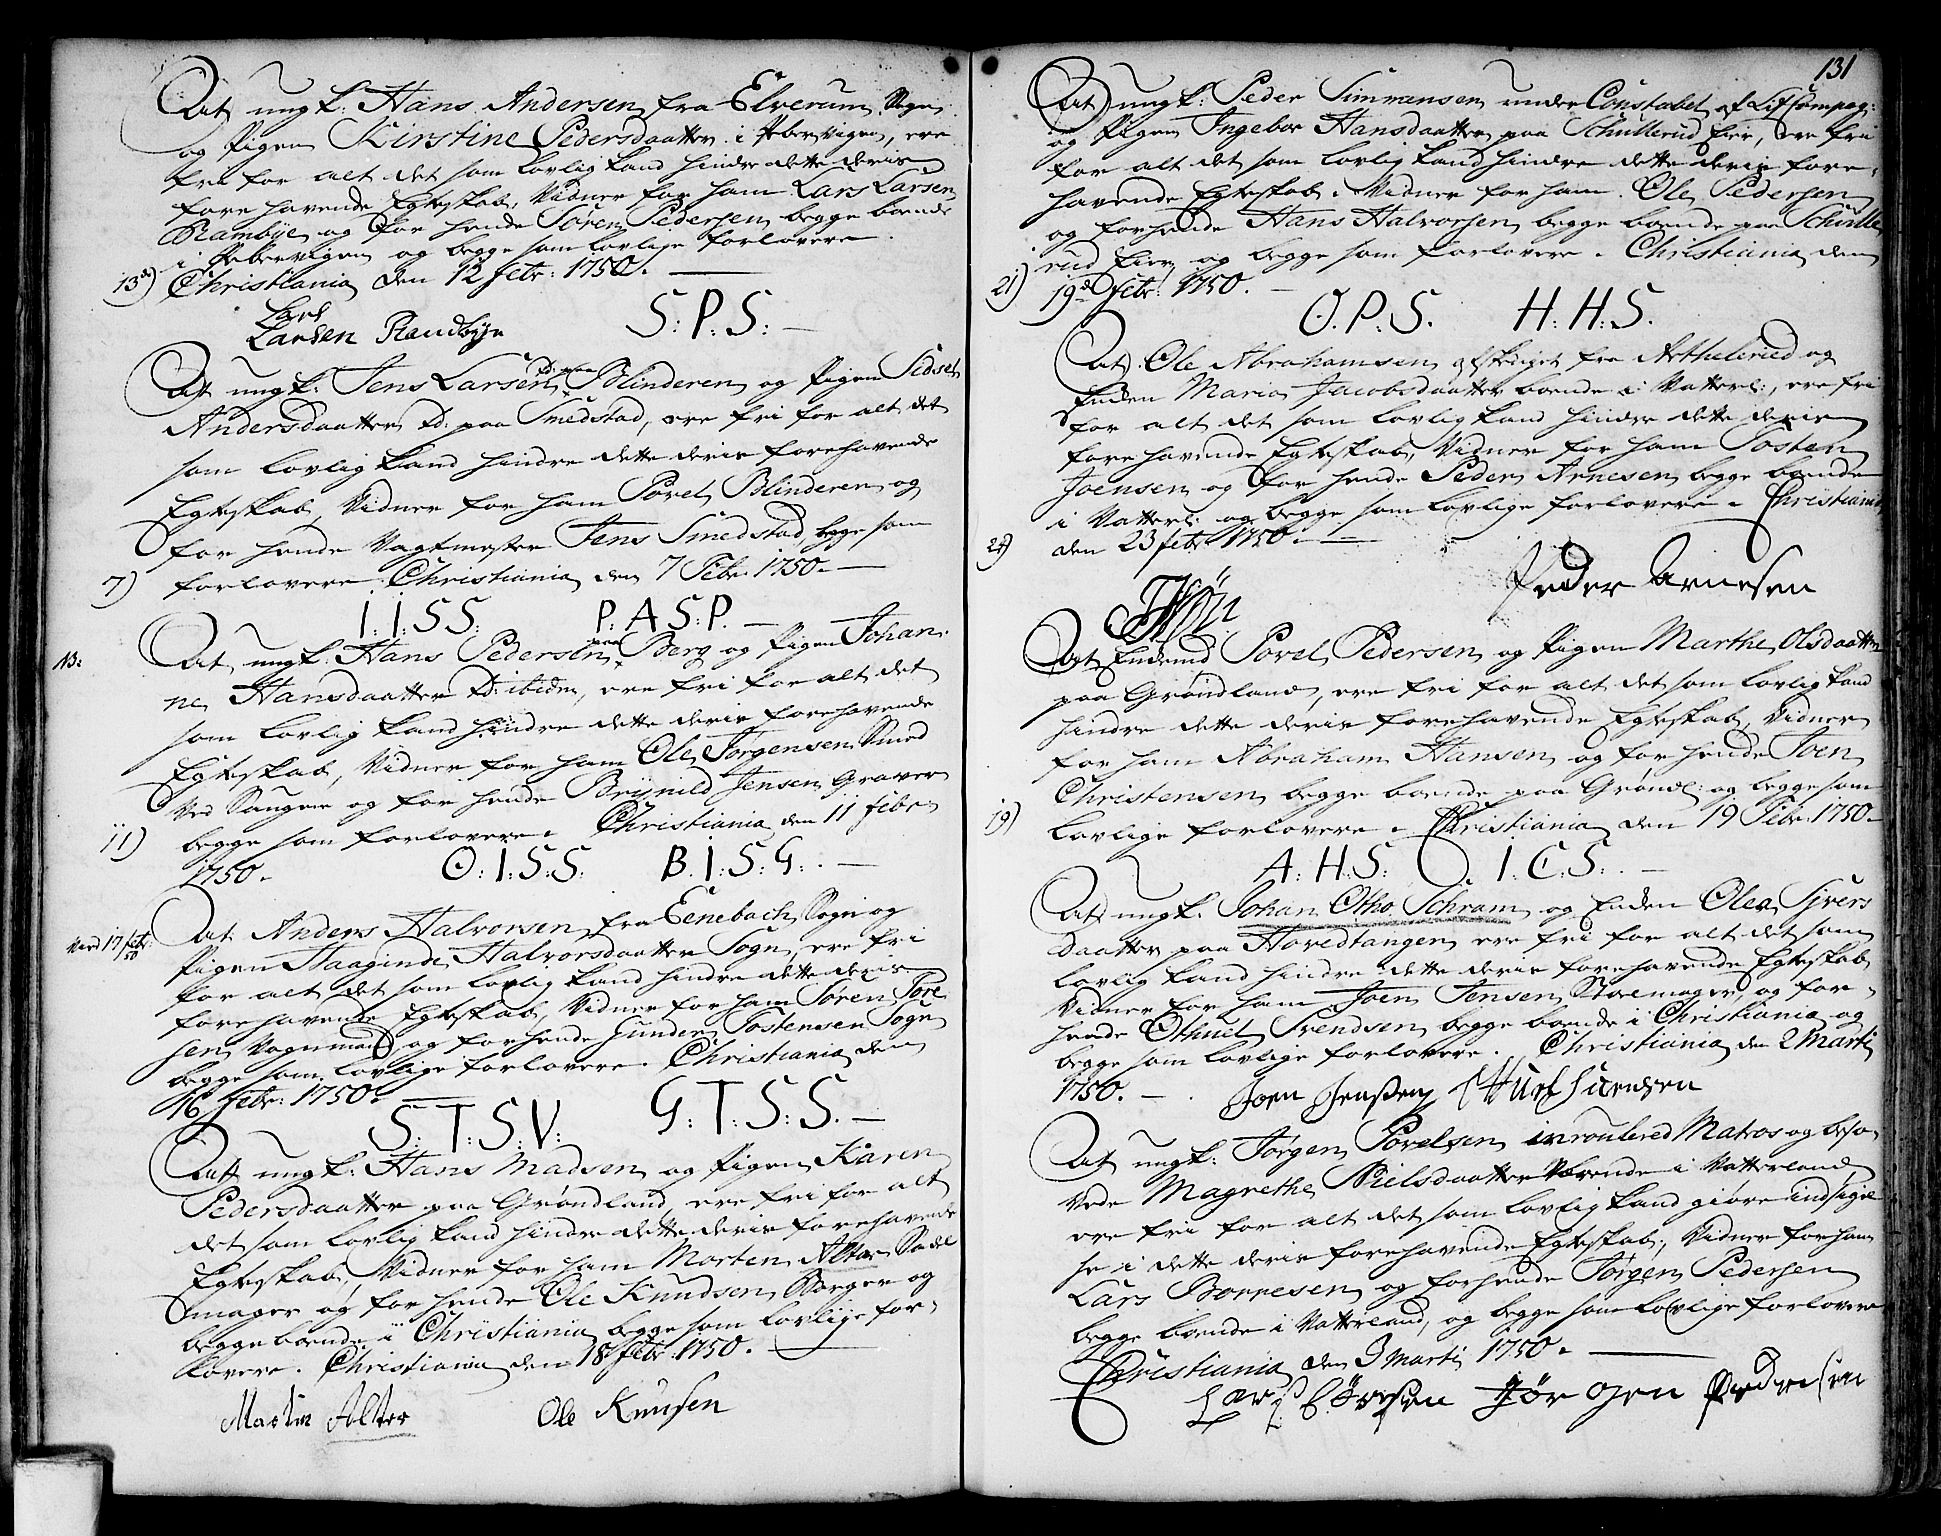 At ungk: Hans Andersen fra Elverum Sogn
og Pigen Kirstine Pedersdaatter i Pebervigen, ere
fri for alt det som lovlig kand hindre dette deris
forehavende Egteskab, Vidner for ham Lars Larsen
Rambÿe og for hende Sören Pedersen begge boende
i Pebervigen og begge som lovlige forlovere.
13) Christiania den 12 febr: 1750.
Lars
Larsen Randbÿe S: P: S:
At ungk: Jens Larsen D: paa Blinderen og Pigen Sidsel
Andersdaatter D: paa Smedstad, ere fri for alt det
som lovlig kand hindre dette deris forehavende
Egteskab, Vidner for ham Povel Blinderen og
for hende Vagtmester Jens Smedstad, begge som
7) forlovere. Christiania den 7 Febr: 1750.
I: I: S S: P: A S: P.
13: At ungk: Hans Pedersen paa Berg og Pigen Johan-
ne Hansdaatter D: ibidem, ere fri for alt det
som lovlig kand hindre dette deris forehavende
Egteskab, Vidner for ham Ole Jørgensen Smed
ved Saugene og for hende Brÿnild Jensen Graver
11) begge som forlovere. Christiania den 11 febr:
1750. O: I: S: S: B. I: S: G:
At Anders Halvorsen fra Eenebach Sogn og
Vied 17 febr: 50
Pigen Haaginde Halvorsdaatter Sogn, ere fri
for alt det som lovlig kand hindre dette deris
forehavende Egteskab, Vidner for ham Sören Tore
sen Vognmand og for hende Gunder Tostensen Sogn
begge som lovlige forlovere. Christiania den
16 febr: 1750. S: T: S: V: G: T: S: S:
At ungk: Hans Madsen og Pigen Karen
Pedersdaatter paa Grøndland, ere fri for alt
det som lovlig kand hindre dette deris forehavende
Egteskab, Vidner for ham Morten Alter Sadel
mager og for hende Ole Knudsen Borger og
begge boende i Christiania begge som lovlige for-
lovere. Christiania den 18 febr: 1750.
Martin Alter Ole Knusen
131
At ungk: Peder Simmensen under Constabel af Lif Compag:
og Pigen Ingebor Hansdaatter paa Schullerud Eier, ere fri
for alt det som lovlig kand hindre dette deris fore-
havende Egteskab. Vidner for ham Ole Pedersen
og for hende Hans Halvorsen begge boende paa Schulle
rud Eier og begge som forlovere. Christiania den
21) 19de Febr: 1750.
O. P. S. H: H: S.
At Ole Abrahamsen afskediget fra Artheleried og
Enken Maria Jacobsdaatter boende i Vatterl:, ere fri
for alt det som lovlig kand hindre dette deris
forehavende Egteskab, Vidner for ham Tosten
Joensen og for hende Peder Arnesen begge boende
i Vatterl: og begge som lovlige forlovere. Christiania
den 23 febr: 1750.
Peder Arnesen
At Enkemd Povel Pedersen og Pigen Marthe Olsdaatter
paa Grøndland, ere fri for alt det som lovlig kand
hindre dette deris forehavende Egteskab, Vidner
for ham Abraham Hansen og for hende Joen
Christensen begge boende paa Grøndl: og begge som
19) lovlige forlovere. Christiania den 19 Febr: 1750.
A: H: S: I. C: S:
At ungk: Johan Otho Schram og Enken Olea Sjvers
daatter paa Hovedtangen ere fri for alt det som
lovlig kand hindre dette deris forehavende Egteskab
Vidner for ham Joen Jensen Skoemager, og for
hende Othuel Svendsen begge boende i Christiania og
begge som lovlige forlovere. Christiania den 2 Marti
1750. Joen Jenßen
At ungk: Jørgen Povelsen inroulered Matros og beso-
vede Magrethe Nielsdaatter boende i Vatterland,
ere fri for alt det som lovlig kand giøre indsigel
se i dette deris forehavende Egteskab, Vidner for ham
Lars Borresen og for hende Jørgen Pedersen
begge boende i Vatterland, og begge som lovlige forlovere
Christiania den 3 Marti 1750.
Lars Børesen Jörgen Pedersen